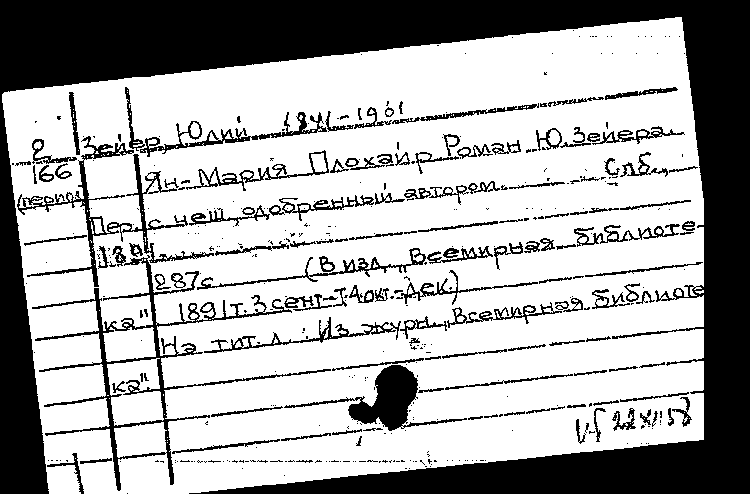 Зейер Юлий 1841-1901
166 Ян-Мария Плохайр Роман Ю.Зейера.
(период) Пер. с чеш., одобренный автором. Спб.,
1891.
287с (В изд. „Всемирная библиоте-
ка" 1891 т. 3 сент.-т. 4 окт.-дек.)
На тит. л.: Из журн. „Всемирная библиоте
ка".
22 XII 58